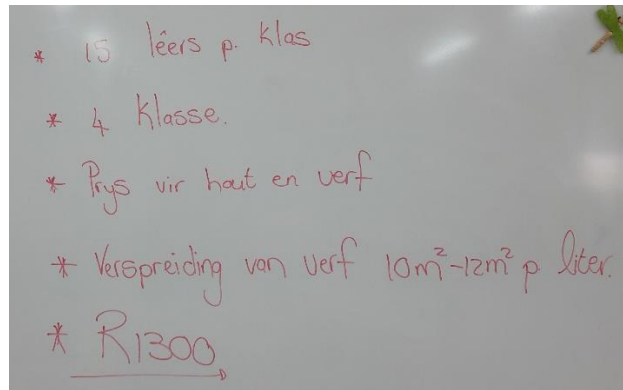 * 15 lêers p. klas
* 4 klasse.
* Prys vir hout en verf
* Verspreiding van verf 10m²-12m² p liter.
* R1300